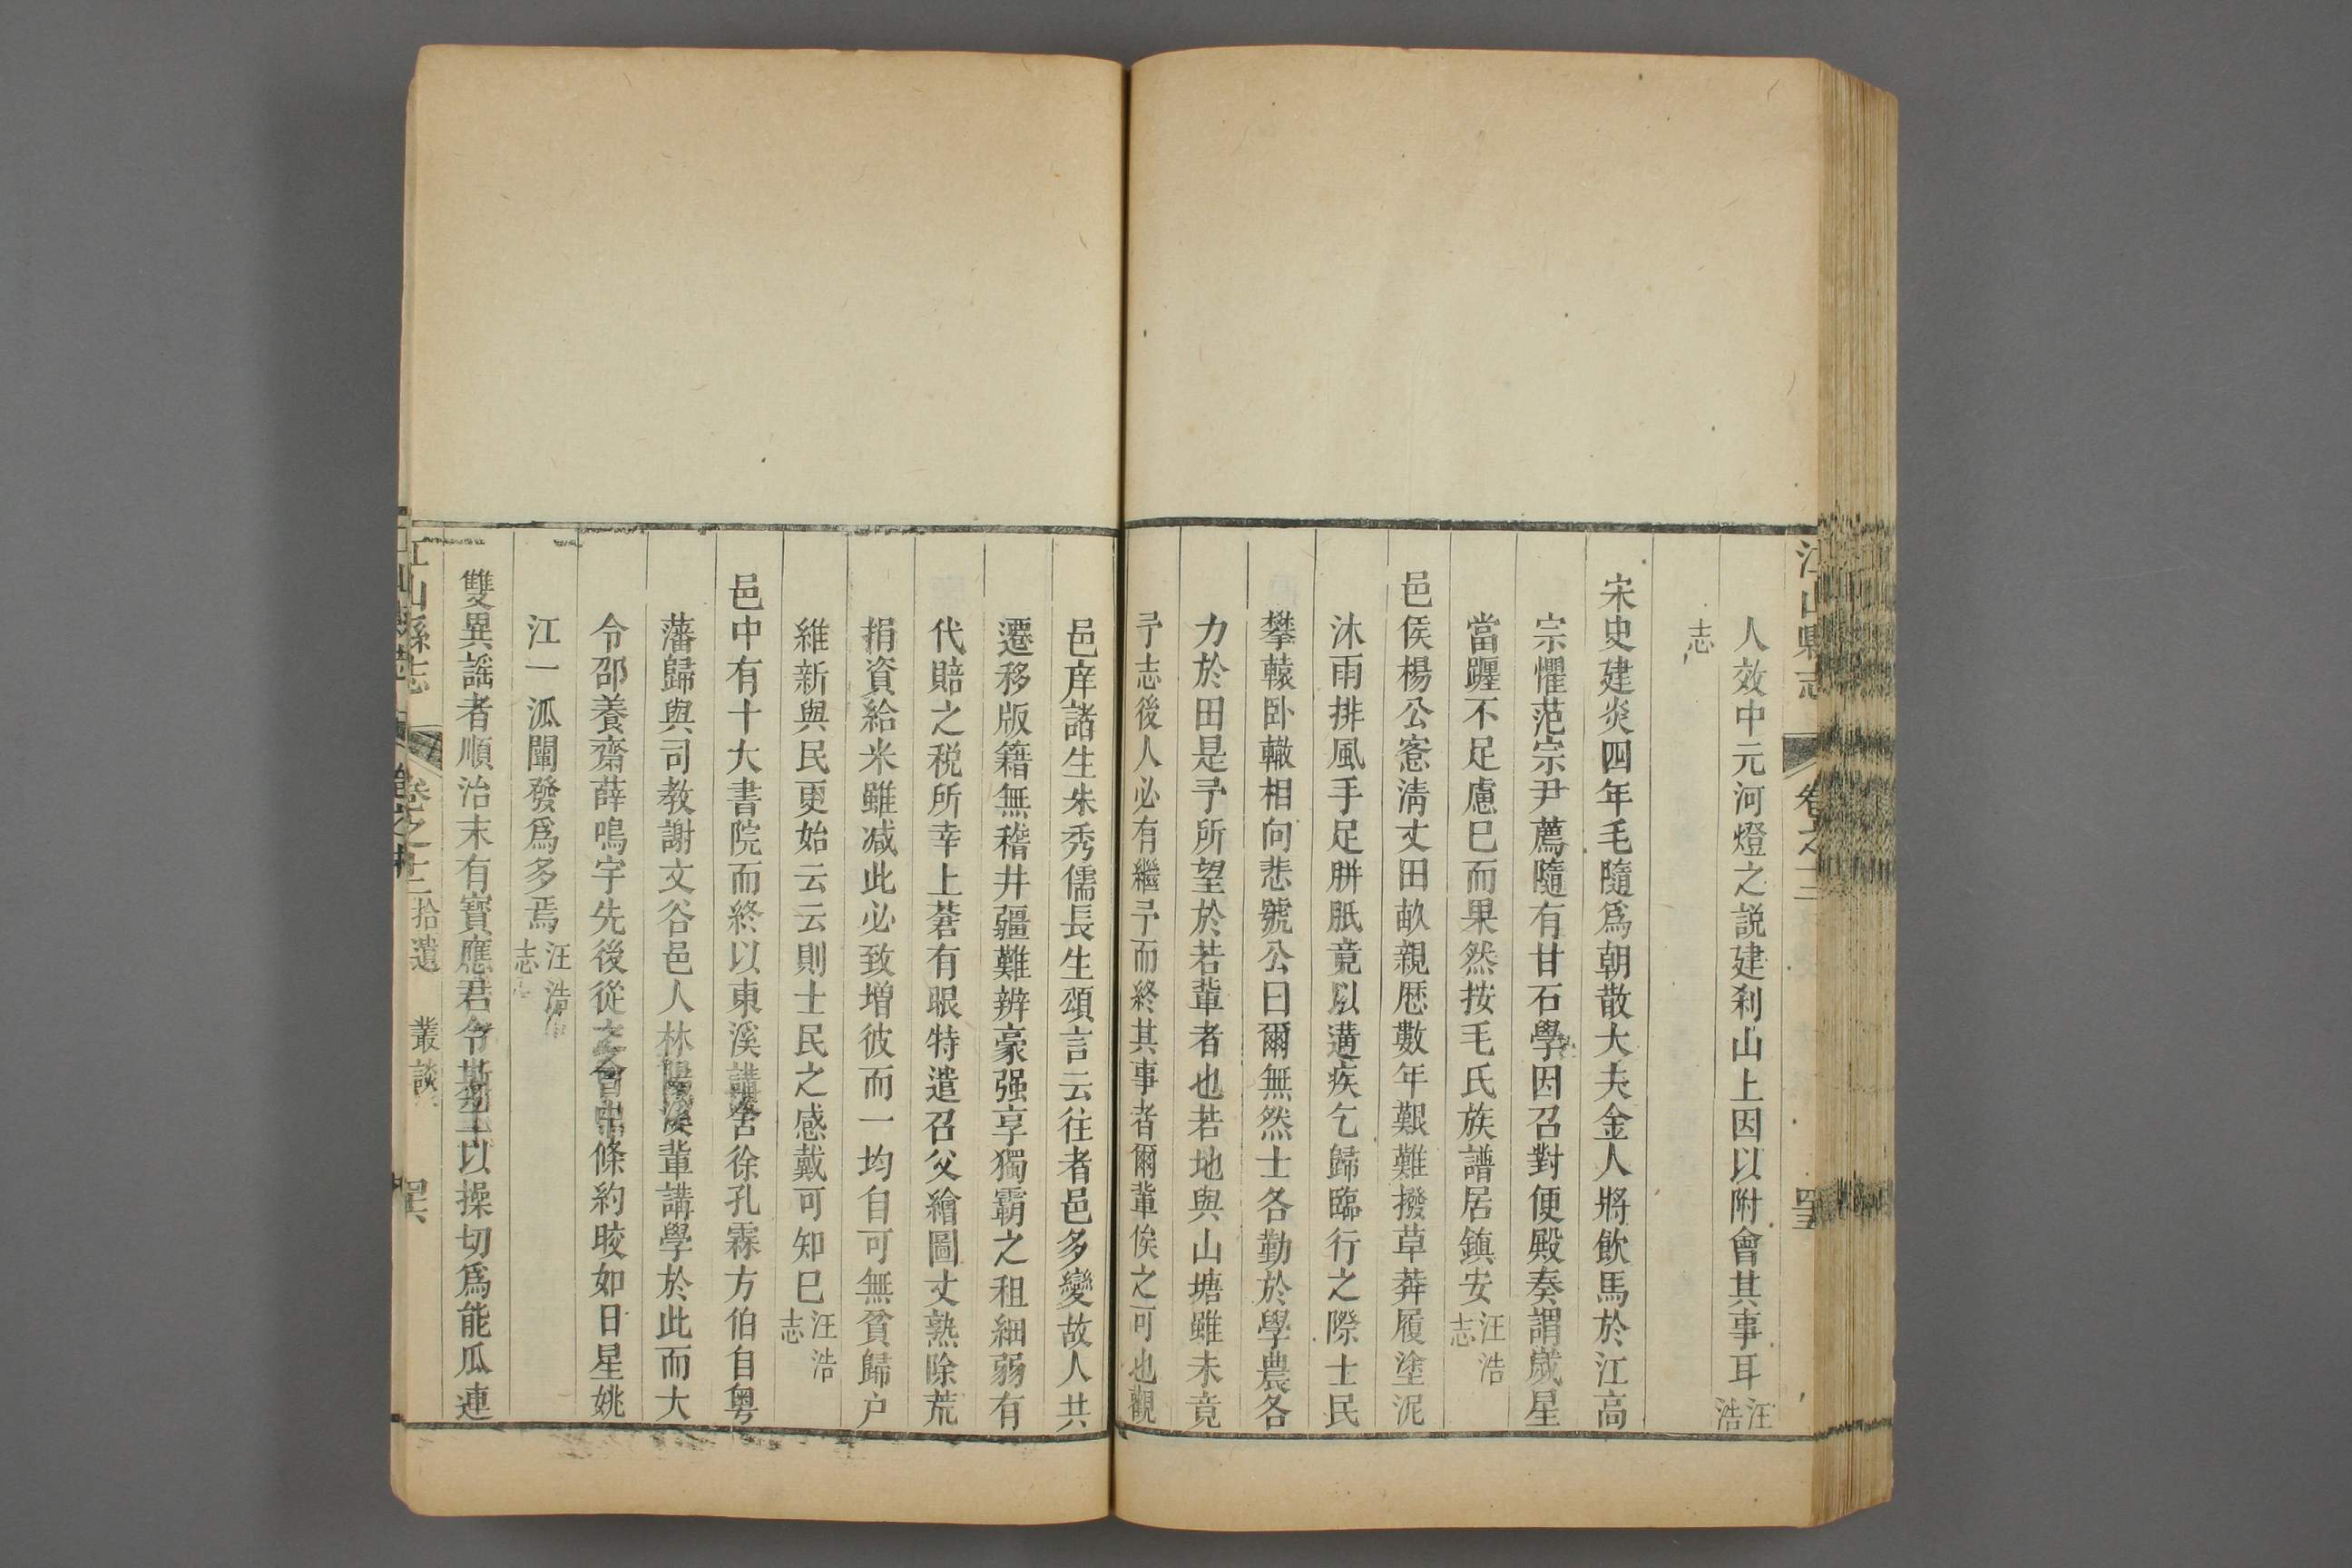 江山縣志
卷之十二
人效中元河燈之説建刹山上因以附會其事耳汪浩
志
宋史建炎四年毛隨爲朝散大夫金人將飲馬於江高
宗懼范宗尹薦隨有甘石學因召對便殿奏謂歲星
當躔不足慮已而果然按毛氏族譜居鎮安汪浩志
邑侯楊公窓清丈田畝親歴數年艱難撥草莽履塗泥
沐雨排風手足胼胝竟以遘疾乞歸臨行之際士民
攀轅卧轍相向悲號公曰爾無然士各勤於學農各
力於田是予所望於若輩者也若地與山塘雖未竟
予志後人必有繼予而終其事者爾輩俟之可也觀
邑庠諸生朱秀儒長生頌言云往者邑多變故人共
遷移版籍無稽井疆難辨豪强享獨霸之租細弱有
代賠之税所幸上蒼有眼特遣召父繪圖丈熟除荒
捐資給米雖減此必致增彼而一均自可無貧歸户
維新與民更始云云則士民之感戴可知已汪浩志
邑中有十大書院而終以東溪講舍徐孔霖方伯自粤
藩歸與司教謝文谷邑人林溪輩講學於此而大
令邵養齋薛鳴宇先後從之會中條約晈如日星姚
江一泒闡發爲多焉汪浩志
雙異謡者順治末有寳應君令斯土以操切爲能瓜連
江山縣志
卷之十二拾遺 叢談